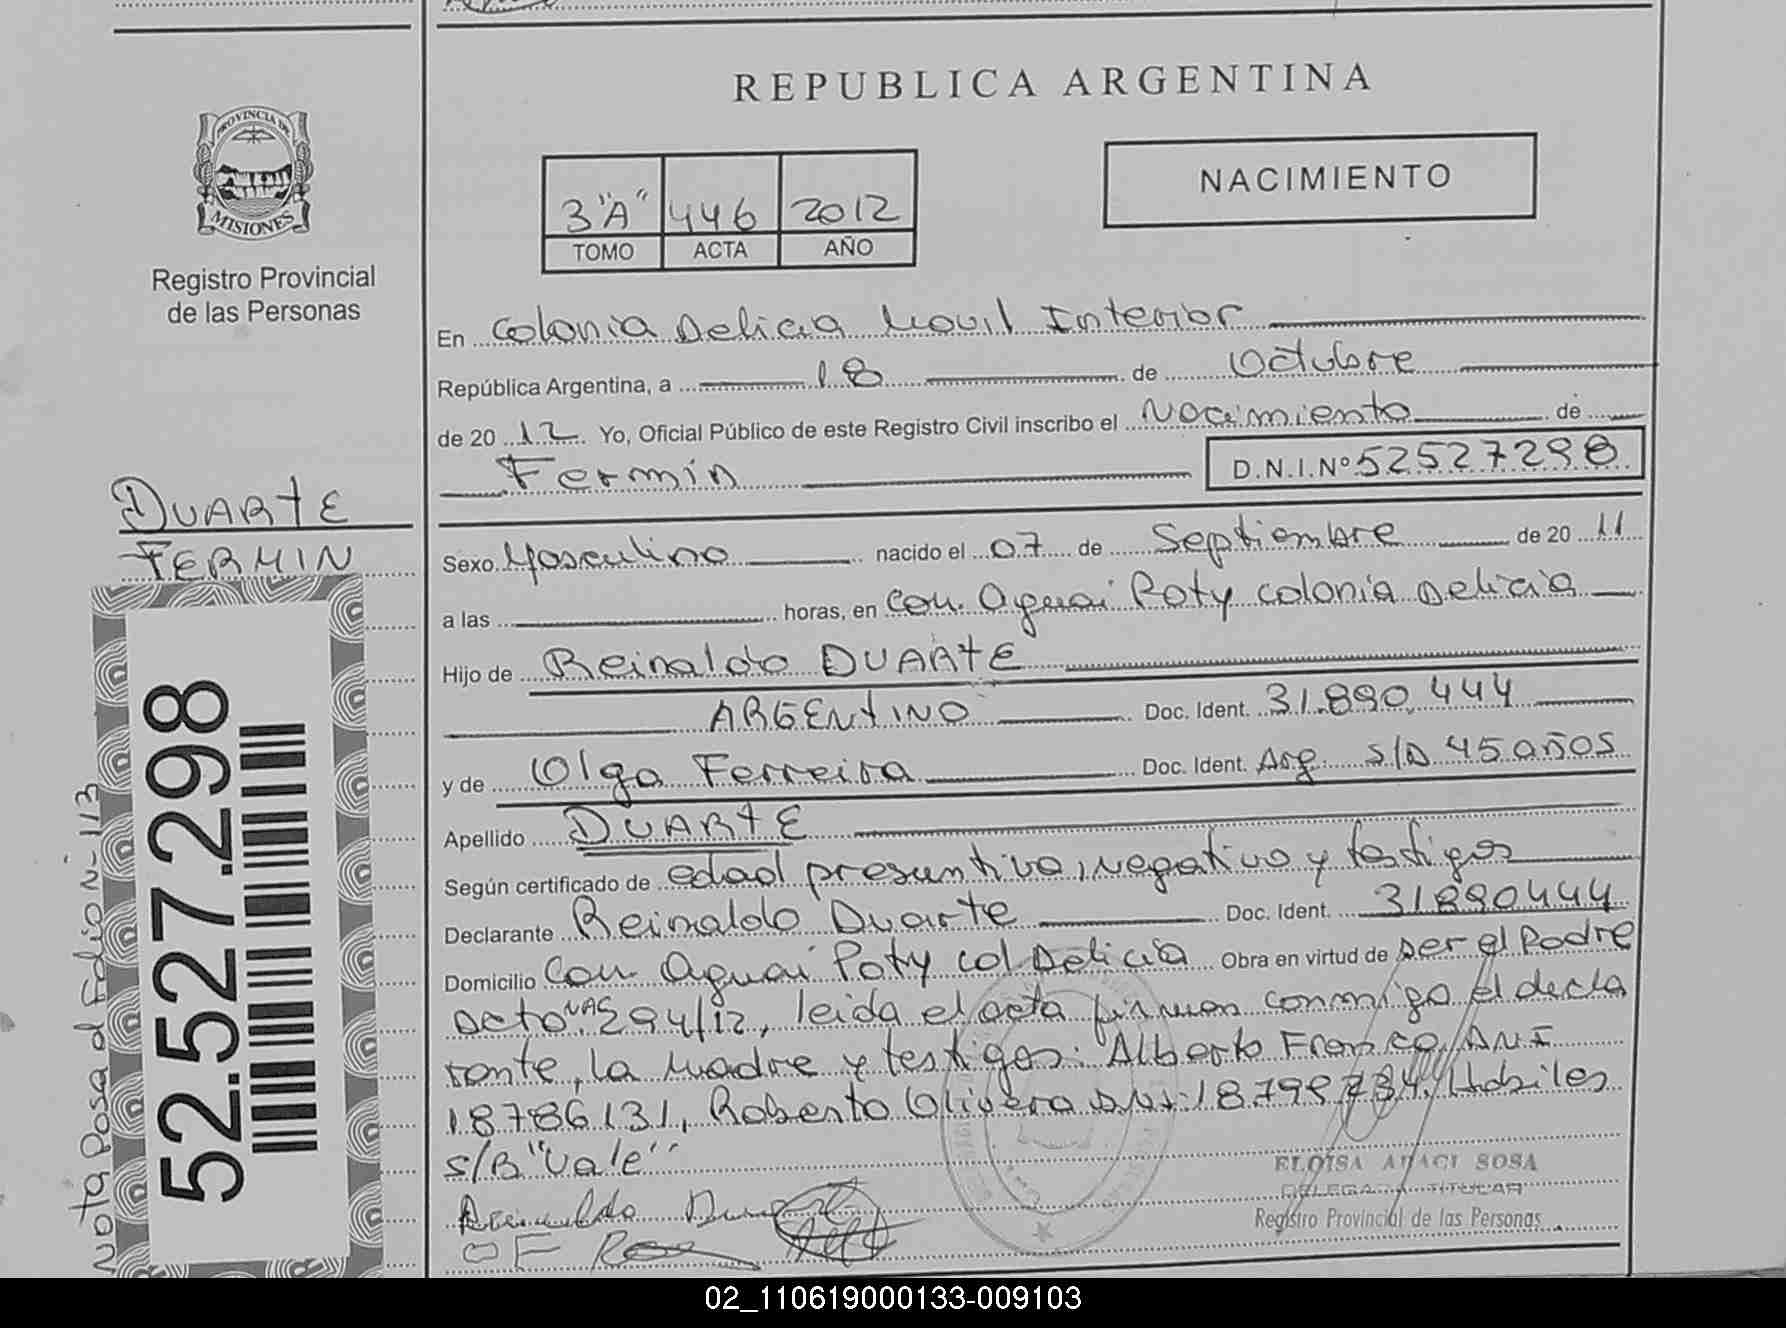 REPUBLICA ARGENTINA
PROVINCIA DE
MISIONES
Registro Provincial
de las Personas
NACIMIENTO
3 "A" 446 2012
TOMO ACTA AÑO
En Colonia Delicia Movil Interior
República Argentina, a 18 de Octubre
de 20 12 Yo, Oficial Público de este Registro Civil inscribo el Nacimiento de
Fermin D.N.I.Nº 52527298
DUARTE
FERMIN
Sexo Masculino nacido el 07 de Septiembre de 20 11
a las horas, en Com. Aguai Poty colonia Delicia
Hijo de Reinaldo DUARTE
ARGENTINO Doc. Ident. 31.890.444
y de Olga Ferreira Doc. Ident. Arg. s/D 45 años
Apellido DUARTE
Según certificado de edad presuntiva, negativo y testigos
Declarante Reinaldo Duarte Doc. Ident. 31890444
Domicilio Com Aguai Poty col Delicia Obra en virtud de ser el Padre
acto NAC 294/12, leida el acta firman conmigo el decla
rante, la madre y testigos: Alberto Franco DNI
18786131, Roberto Olivera DNI 18.798.734 Habiles
s/B "Vale"
Reinaldo
OF
ELOISA ARACI SOSA
DELEGADA TITULAR
Registro Provincial de las Personas
52.527.298
Nota Posa al Folio Nº 113
02_110619000133-009103